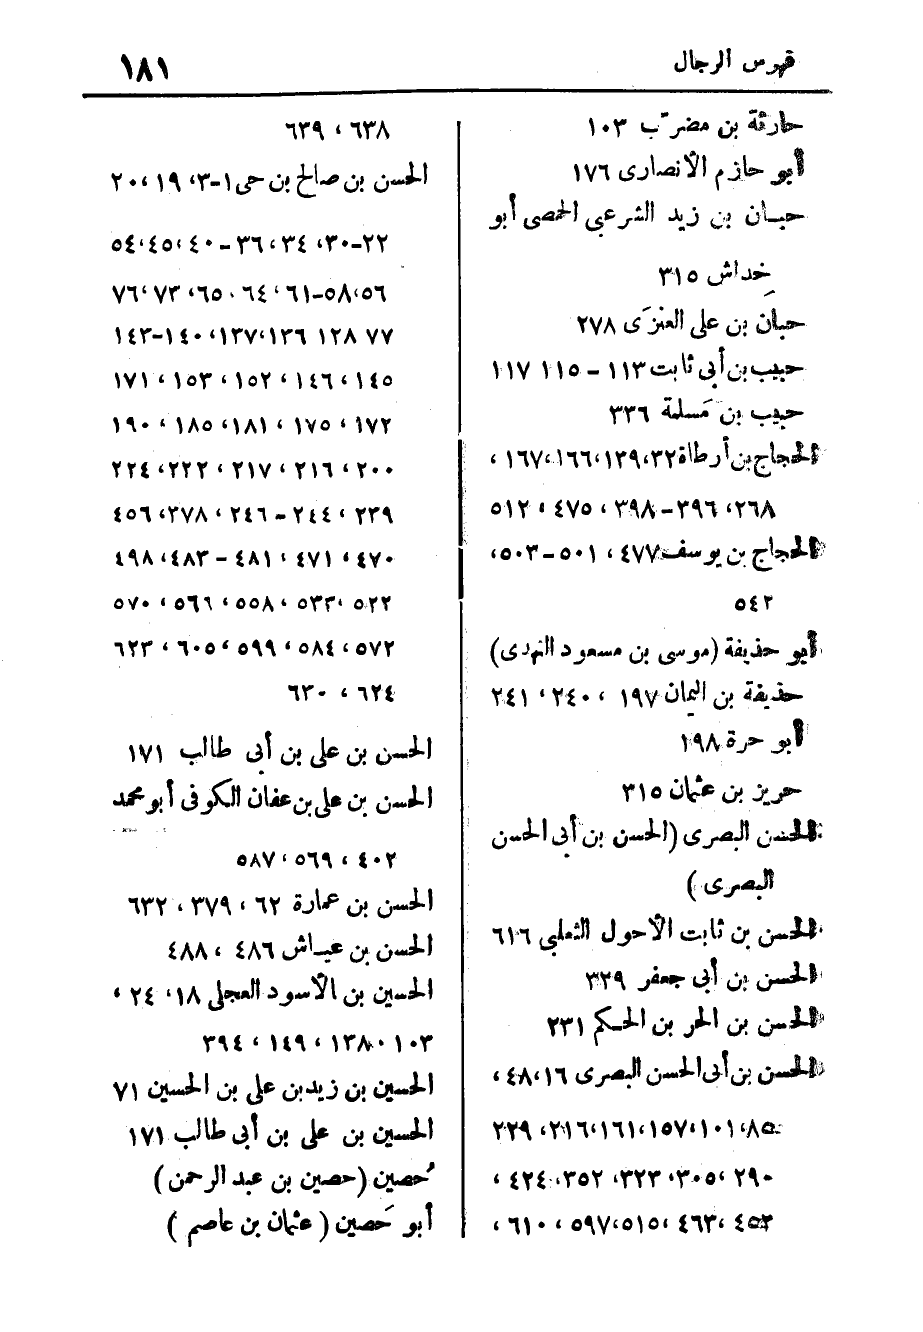 فهرس الرجال ١٨١
حارثة بن مضرّب ١٠٣
أبو حازم الأنصارى ١٧٦
حبان بن زيد الشرعبى الحمصى أبو
خِداش ٣١٥
حبان بن على العنزَى ٢٧٨
حبيب بن أبى ثابت ١١٣ – ١١٥ ١١٧
حبيب بن مَسلمة ٣٣٦
الحجاج بن أرطاة ٣٢، ١٣٩، ١٦٦، ١٦٧،
٢٦٨، ٣٩٦–٣٩٨، ٤٧٥، ٥١٢
الحجاج بن يوسف ٤٧٧، ٥٠١–٥٠٣،
٥٤٢
أبو حذيفة (موسى بن مسعود النهدى)
حذيفة بن اليمان ١٩٧، ٢٤٠، ٢٤١
أبو حرة ١٩٨
حريز بن عثمان ٣١٥
الحسن البصرى (الحسن بن أبى الحسن
البصرى)
الحسن بن ثابت الأحول الثعلبى ٦١٦
الحسن بن أبى جعفر ٣٢٩
الحسن بن الحر بن الحكم ٢٣١
الحسن بن أبى الحسن البصرى ١٦، ٤٨،
٨٥، ١٠١، ١٥٧، ١٦١، ٢١٦، ٢٢٩
٢٩٠، ٣٠٥، ٣٢٣، ٣٥٢، ٤٢٤،
٤٥٣، ٤٦٣، ٥١٥، ٥٩٧، ٦١٠،
٦٣٨، ٦٣٩
الحسن بن صالح بن حى ١–٣، ١٩، ٢٠،
٢٢–٣٠، ٣٤، ٣٦–٤٠، ٤٥، ٥٤
٥٦، ٥٨–٦١، ٦٤، ٦٥، ٧٣، ٧٦
٧٧ ١٢٨ ١٣٦، ١٣٧، ١٤٠–١٤٣
١٤٥، ١٤٦، ١٥٢، ١٥٣، ١٧١
١٧٢، ١٧٥، ١٨١، ١٨٥، ١٩٠
٢٠٠، ٢١٦، ٢١٧، ٢٢٢، ٢٢٤
٢٣٩، ٢٤٤–٢٤٦، ٣٧٨، ٤٥٦
٤٧٠، ٤٧١، ٤٨١–٤٨٣، ٤٩٨
٥٢٢، ٥٣٣، ٥٥٨، ٥٦٩، ٥٧٠
٥٧٢، ٥٨٤، ٥٩٩، ٦٠٥، ٦٢٣
٦٢٤، ٦٣٠
الحسن بن على بن أبى طالب ١٧١
الحسن بن على بن عفان الكوفى أبو محمد
٤٠٢، ٥٦٩، ٥٨٧
الحسن بن عمارة ٦٢، ٣٧٩، ٦٣٢
الحسن بن عياش ٤٨٦، ٤٨٨
الحسين بن الأسود العجلى ١٨، ٢٤،
١٠٣، ١٣٨، ١٤٩، ٣٩٤
الحسين بن زيد بن على بن الحسين ٧١
الحسين بن على بن أبى طالب ١٧١
حُصين (حصين بن عبد الرحمن)
أبو حَصين (عثمان بن عاصم)